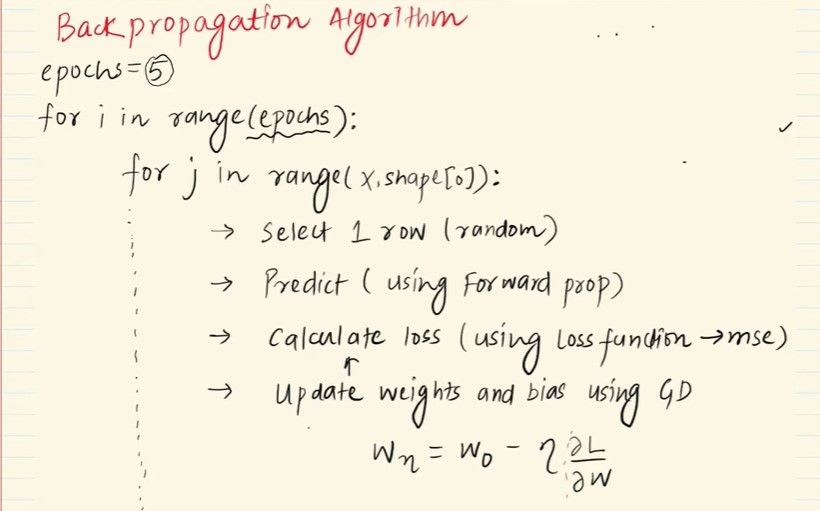 Backpropagation Algorithm
epochs=5
for i in range(epochs):
for j in range(X.shape[0]):
→ Select 1 row (random)
→ Predict (using Forward prop)
→ Calculate loss (using loss function → mse)
→ Update weights and bias using GD
Wn = W0 - η ∂L/∂W